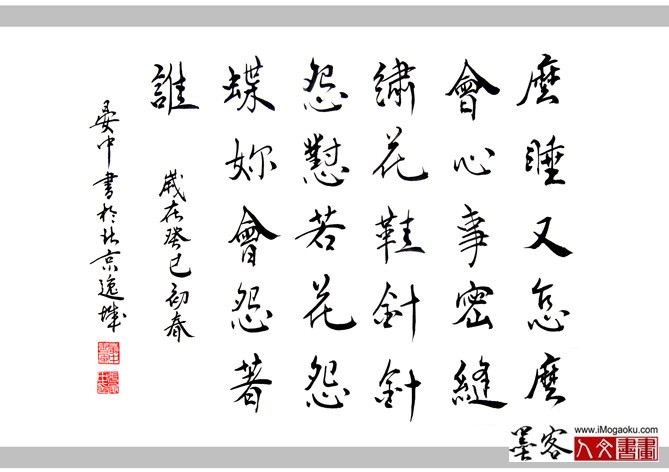 麼睡又怎麼
會心事密縫
繡花鞋針針
怨懟若花怨
蝶妳會怨著
誰
歲在癸巳初春
晏中書於北京逸城
www.iMogaoku.com
墨客
人文書畫